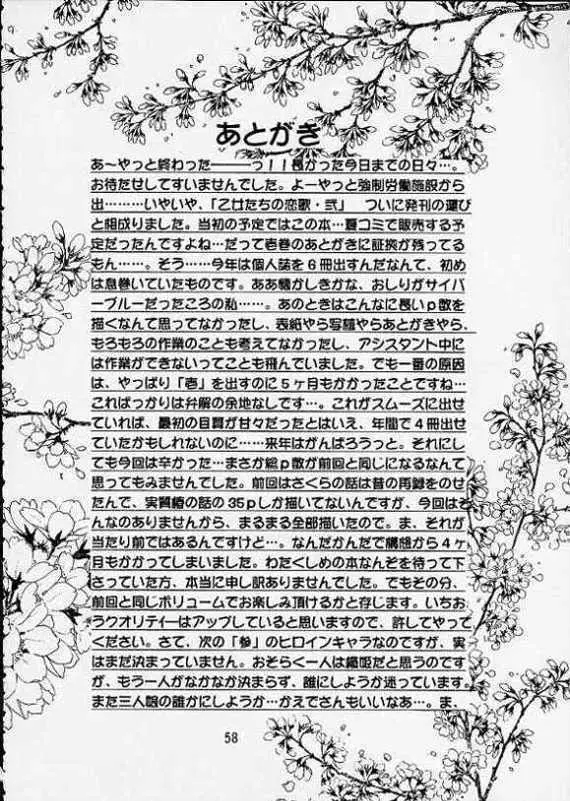 あとがき
あ〜やっと終わった―――っ！！長かった今日までの日々…。
お待たせしてすいませんでした。よーやっと強制労働施設から
出………いやいや、「乙女たちの恋歌・弐」　ついに発刊の運び
と相成りました。当初の予定ではこの本…夏コミで販売する予
定だったんですよね…だって壱巻のあとがきに証拠が残ってる
もん……。そう……今年は個人誌を６冊出すんだなんて、初め
は息巻いていたものです。ああ懐かしきかな、おしりがサイバ
ーブルーだったころの私……。あのときはこんなに長いｐ数を
描くなんて思ってなかったし、表紙やら写植やらあとがきやら、
もろもろの作業のことも考えてなかったし、アシスタント中に
は作業ができないってことも飛んでいました。でも一番の原因
は、やっぱり「壱」を出すのに５ヶ月もかかったことですね…
こればっかりは弁解の余地なしです…。これがスムーズに出せ
ていれば、最初の目算が甘々だったとはいえ、年間で４冊出せ
ていたかもしれないのに……来年はがんばろうっと。それにし
ても今回は辛かった…まさか総ｐ数が前回と同じになるなんて
思ってもみませんでした。前回はさくらの話は昔の再録をのせ
たんで、実質椿の話の３５ｐしか描いてないんですが、今回はそ
んなのありませんから、まるまる全部描いたので。ま、それが
当たり前ではあるんですけど…。なんだかんだで構想から４ヶ
月もかかってしまいました。わたくしめの本なんぞを待って下
さっていた方、本当に申し訳ありませんでした。でもその分、
前回と同じボリュームでお楽しみ頂けるかと存じます。いちお
うクオリティーはアップしていると思いますので、許してやって
ください。さて、次の「参」のヒロインキャラなのですが、実
はまだ決まっていません。おそらく一人は織姫だと思うのです
が、もう一人がなかなか決まらず、誰にしようか迷っています。
また三人娘の誰かにしようか…かえでさんもいいなあ…。ま、
58